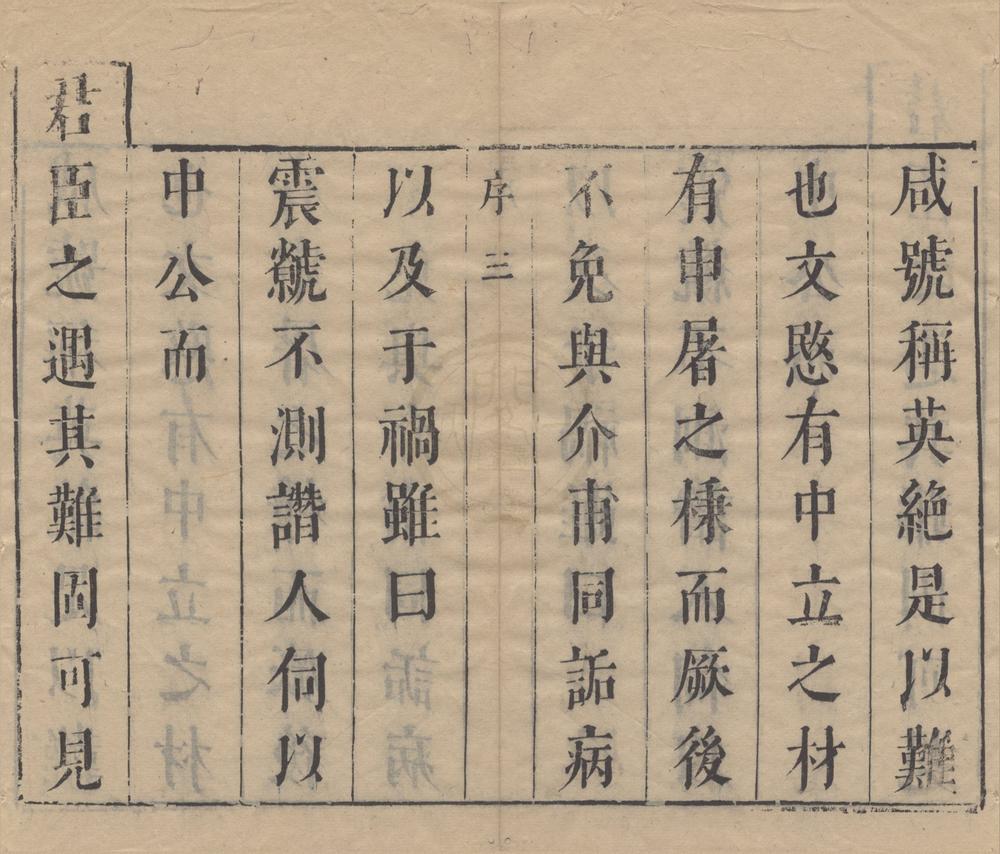 咸號稱英絶是以難
也文愍有中立之材
有申屠之㨗而厥後
不免與介甫同詬病
序 三
以及于禍雖曰
震虩不測譖人伺以
中公而
君臣之遇其難固可見